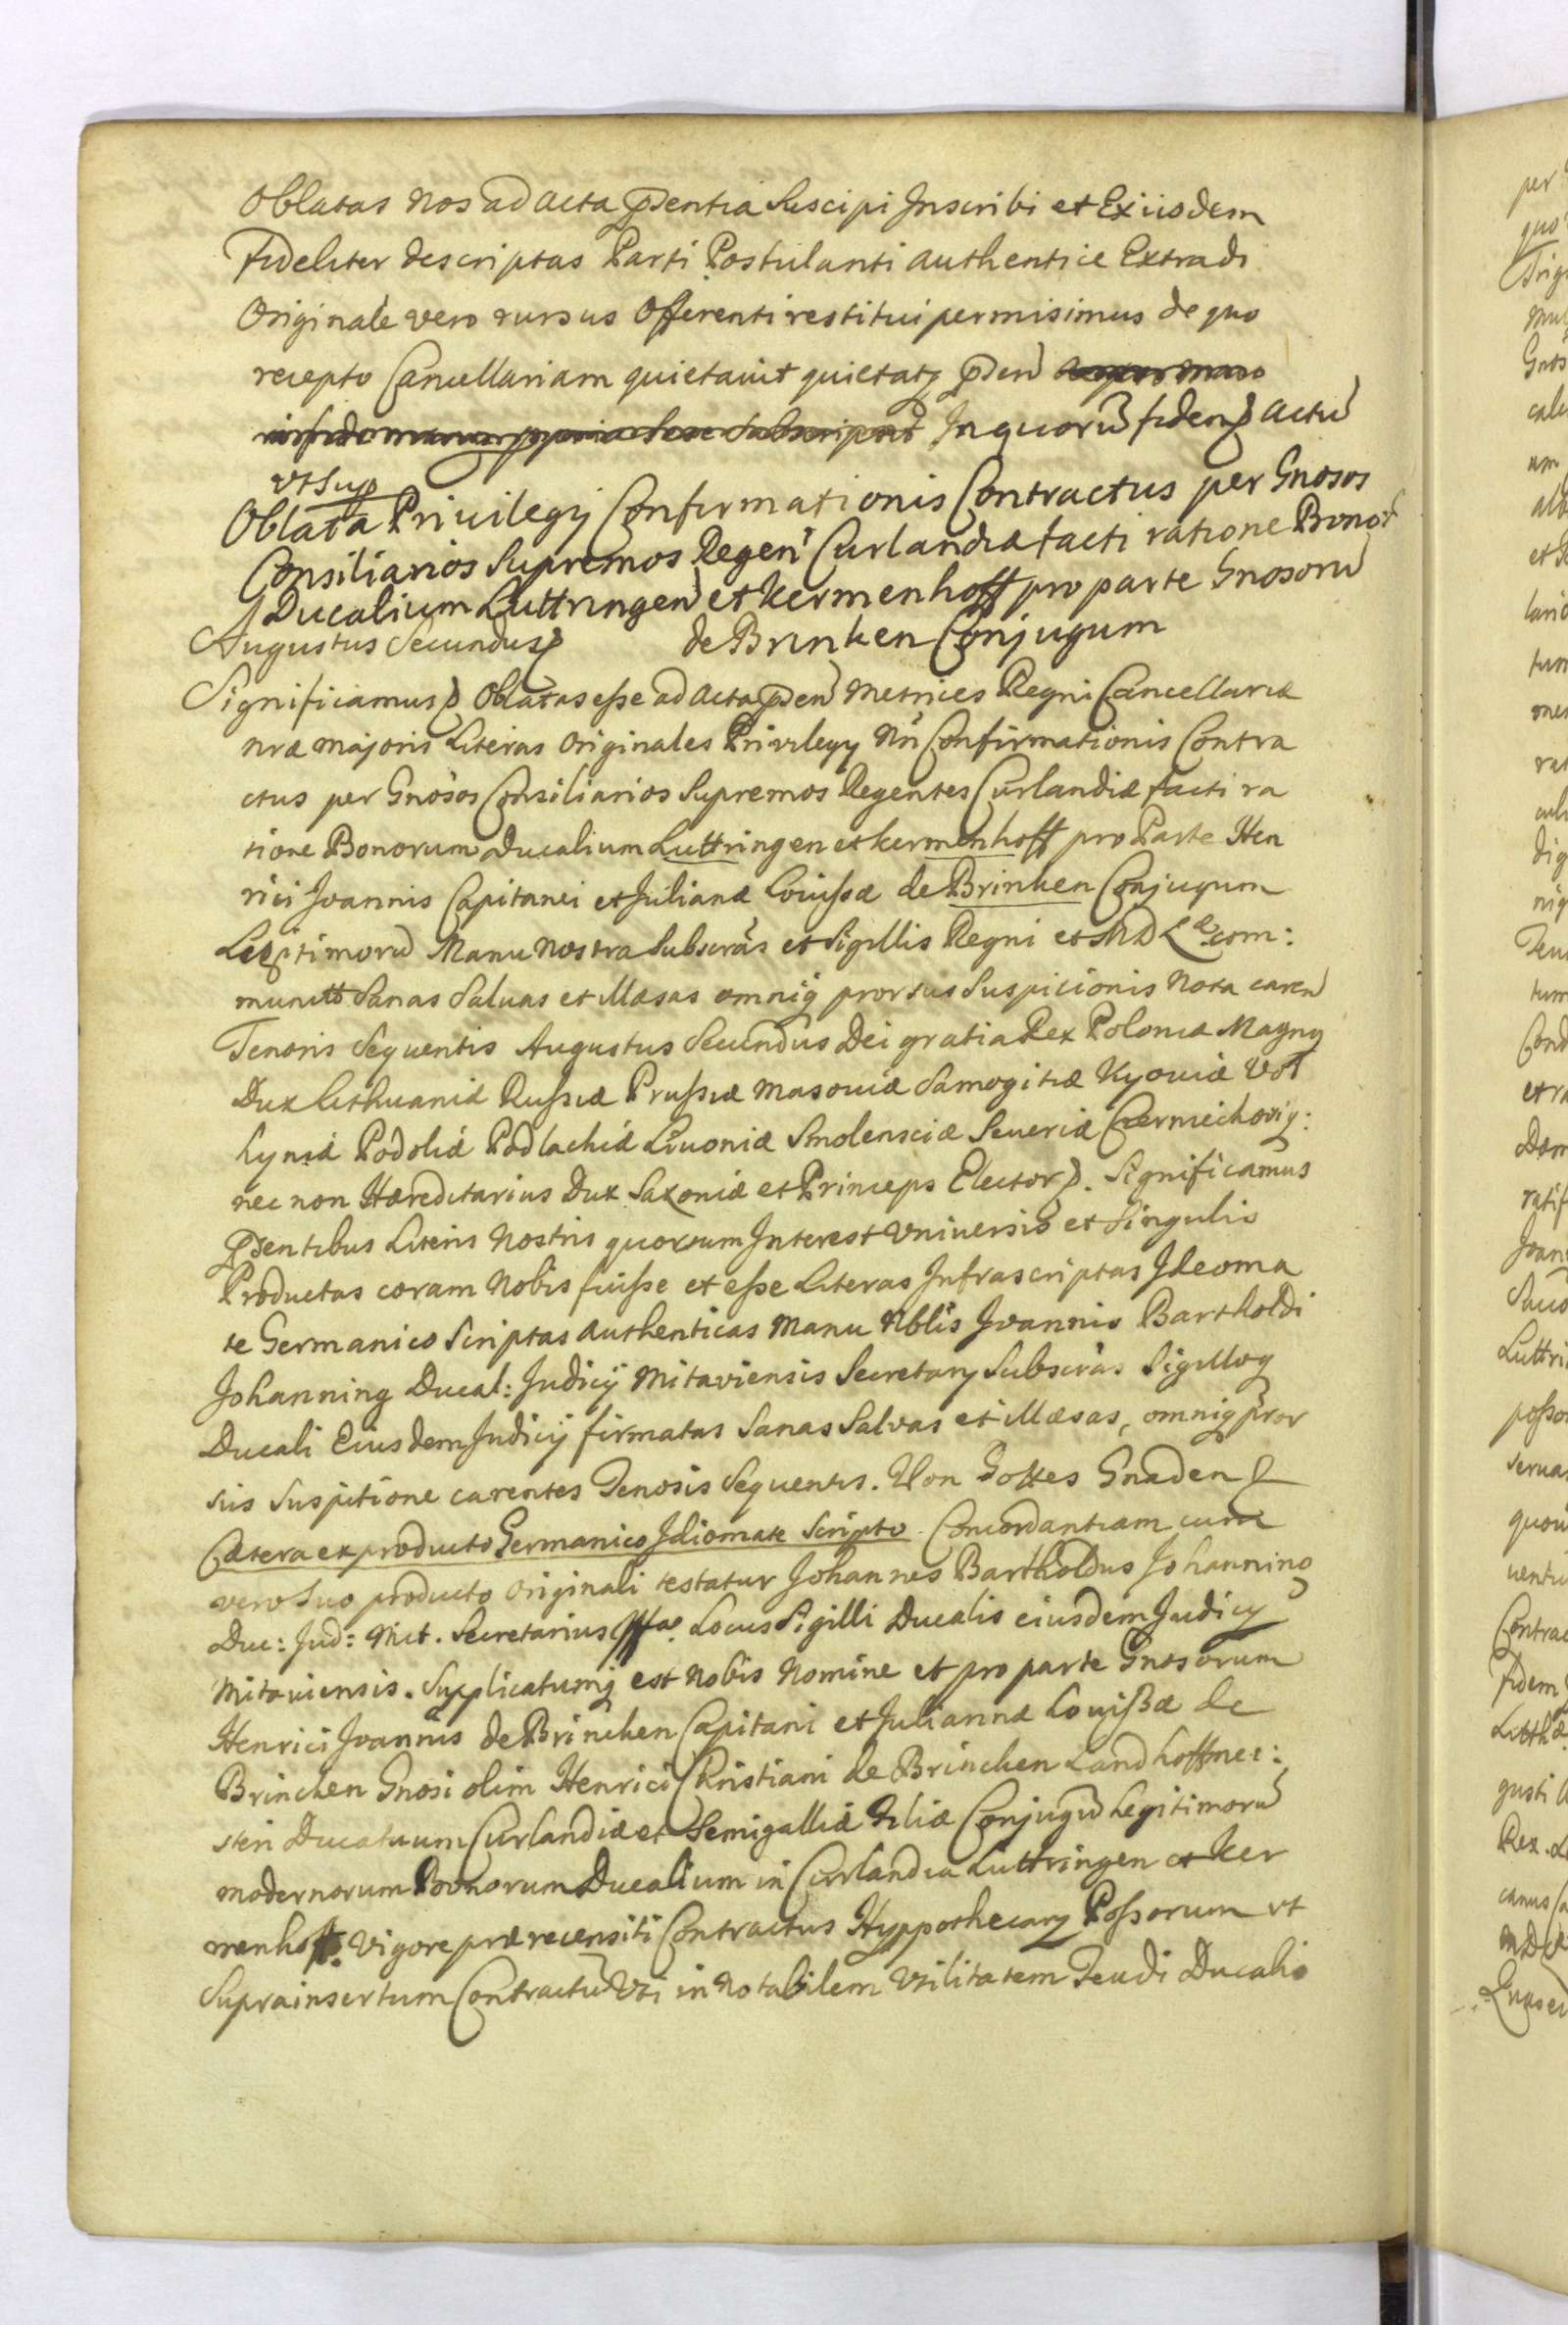 Oblatas Nos ad Acta pñtentia Suscipi Inscribi et Ex iisdem
Fideliter descriptas Parti Postulanti authentice Extradi
Originale vero rursus Offerenti restitui permisimus de quo
recepto Cancellariam quietavit quietatq pñten
In quorũ fidem Actũ
ut Sup
Oblata Privilegij Confirmationis Contractus per Gnosos
Consiliarios Supremos Regen Curlandiæ facti ratione Bonor
Ducalium Luttringen et Kermenhoff pro parte Gnosorũ
Augustus Secundus de Brinken Conjugum
Significamus Oblatas esse ad Acta pñten Metrices Regni Cancellariæ
nræ majoris Literas Originales Privilegy Nri Confirmationis Contra
ctus per Gnosos Consiliarios Supremos Regentes Curlandiæ facti ra
tione Bonorum Ducalium Luttringen et Kermenhoff pro Parte Hen
rici Joannis Capitanei et Julianæ Loüissæ de Brinken Conjugum
Legitimorũ Manu Nostra Subscrãs et Sigillis Regni et M D L com:
munitt Sanas Saluas et Illæsas omniq prorsus Suspicionis Nota caren
Tenoris Sequentis Augustus Secundus Dei gratia Rex Poloniæ Magnq
Dux Lithuaniæ Russiæ Prussiæ Masoviæ Samogitiæ Kyoviæ Vol
hyniæ Podoliæ Podlachiæ Livoniæ Smolensciæ Severiæ Czerniechoviæq:
nec non Hæreditarius Dux Saxoniæ et Princeps Elector. Significamus
pñtentibus Literis Nostris quorum Interest Vniuersis et Singulis
Productas coram Nobis fuisse et esse Literas Infrascriptas Jdeoma
te Germanico Scriptas Authenticas Manu Nblis Joannis Bartholdi
Johanning Ducal: Judicij Mitaviensis Secretary Subscrãs Sigilloq
Ducali Eiusdem Judicij firmatas Sanas Salvas et Illæsas, omniq pror
sus Suspitione carentes Tenoris Sequentis. Von Gottes Gnaden
Cætera ex producto Germanico Jdiomate Scripto. Concordantiam cum
vero Suo producto Originali testatur Johannes Bartholdus Johanning
Duc: Jud: Mit. Secretarius Locus Sigilli Ducalis eiusdem Judicy
Mitaviensis. Supplicatumq est Nobis Nomine et pro parte Gnosorum
Henrici Joannis de Brincken Capitani et Juliannæ Louißæ de
Brincken Gnosi olim Henrici Christiani de Brincken Landhoffmei:
steri Ducatuum Curlandiæ et Semigalliæ Filiæ Conjugũ Legitimorũ
modernorum Bonorum Ducalium in Curlandia Luttringen et Ker
menhoff. Vigore prærecensiti Contractus Hyppothecary Possorum ut
Suprainsertum Contractũ Uti in Notabilem Vtilitatem Feudi Ducalis